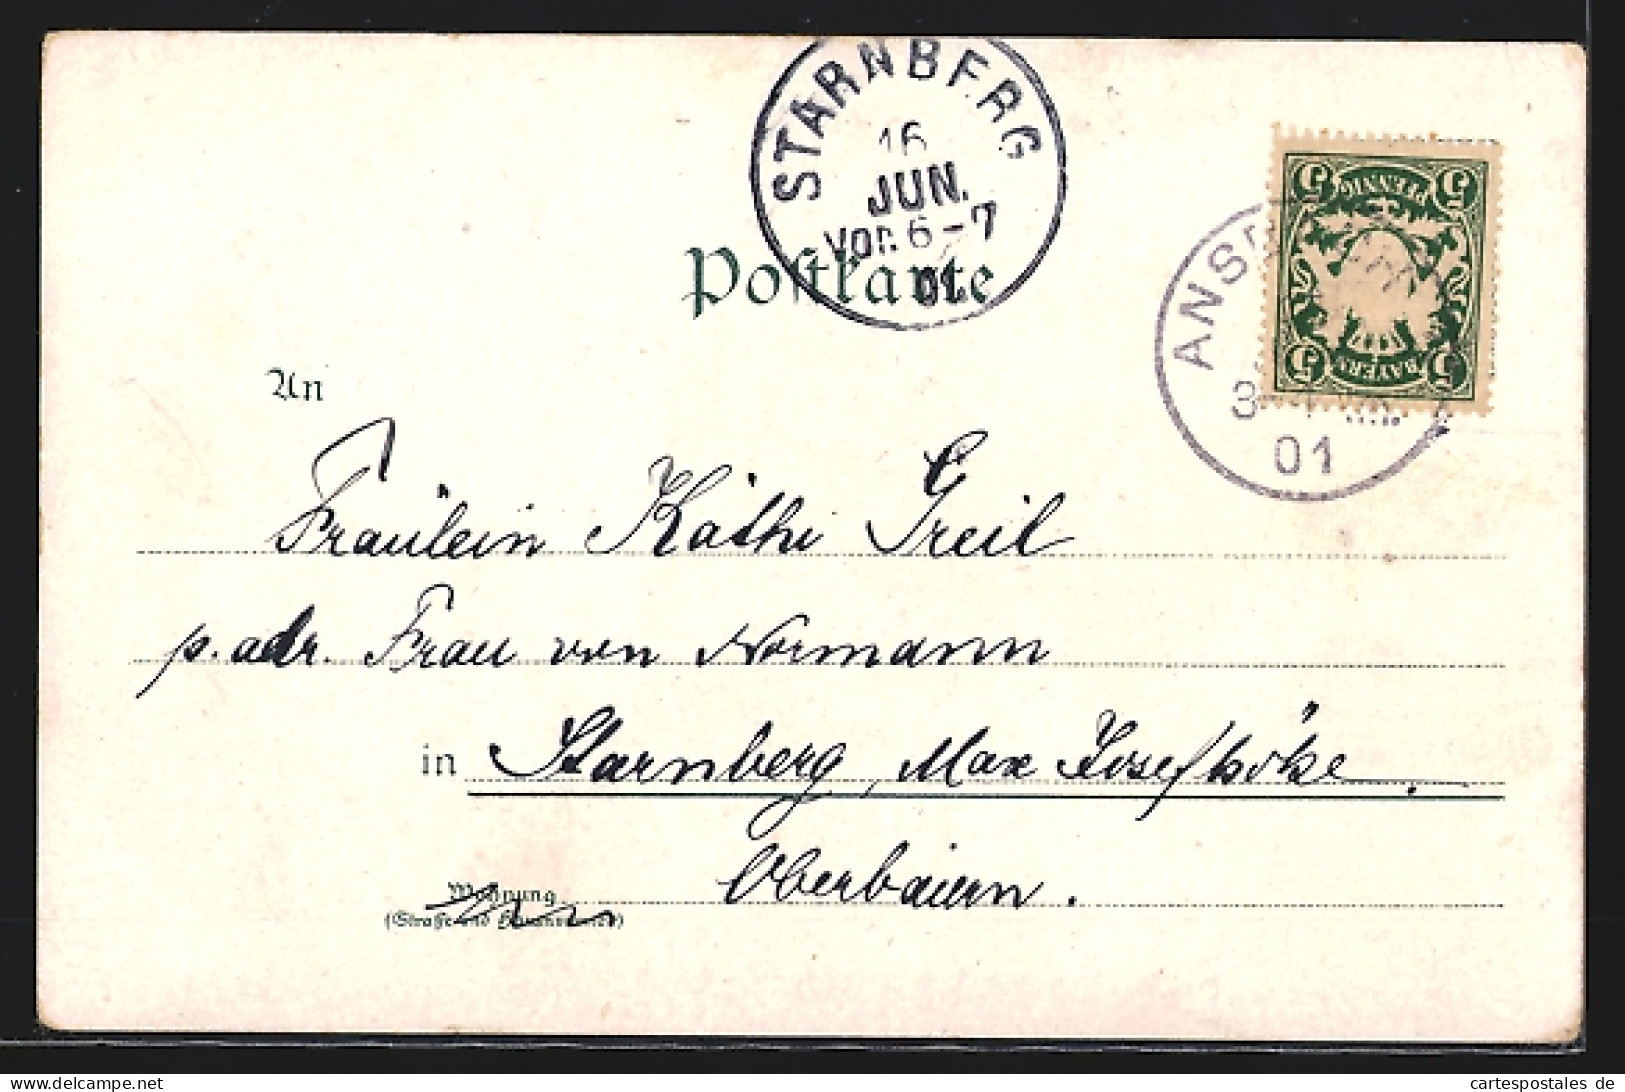 STARNBERG
16
JUN.
Vor. 6-7
01.
Postkarte
5 PFENNIG 5
5 BAYERN 5
ANS
3-4
01
An
Fräulein Käthi Greil
p. adr. Frau von Normann
in Starnberg, Max Josefhöhe.
Oberbaiern.
Wohnung
(Straße und Hausnummer)
cartespostales.de